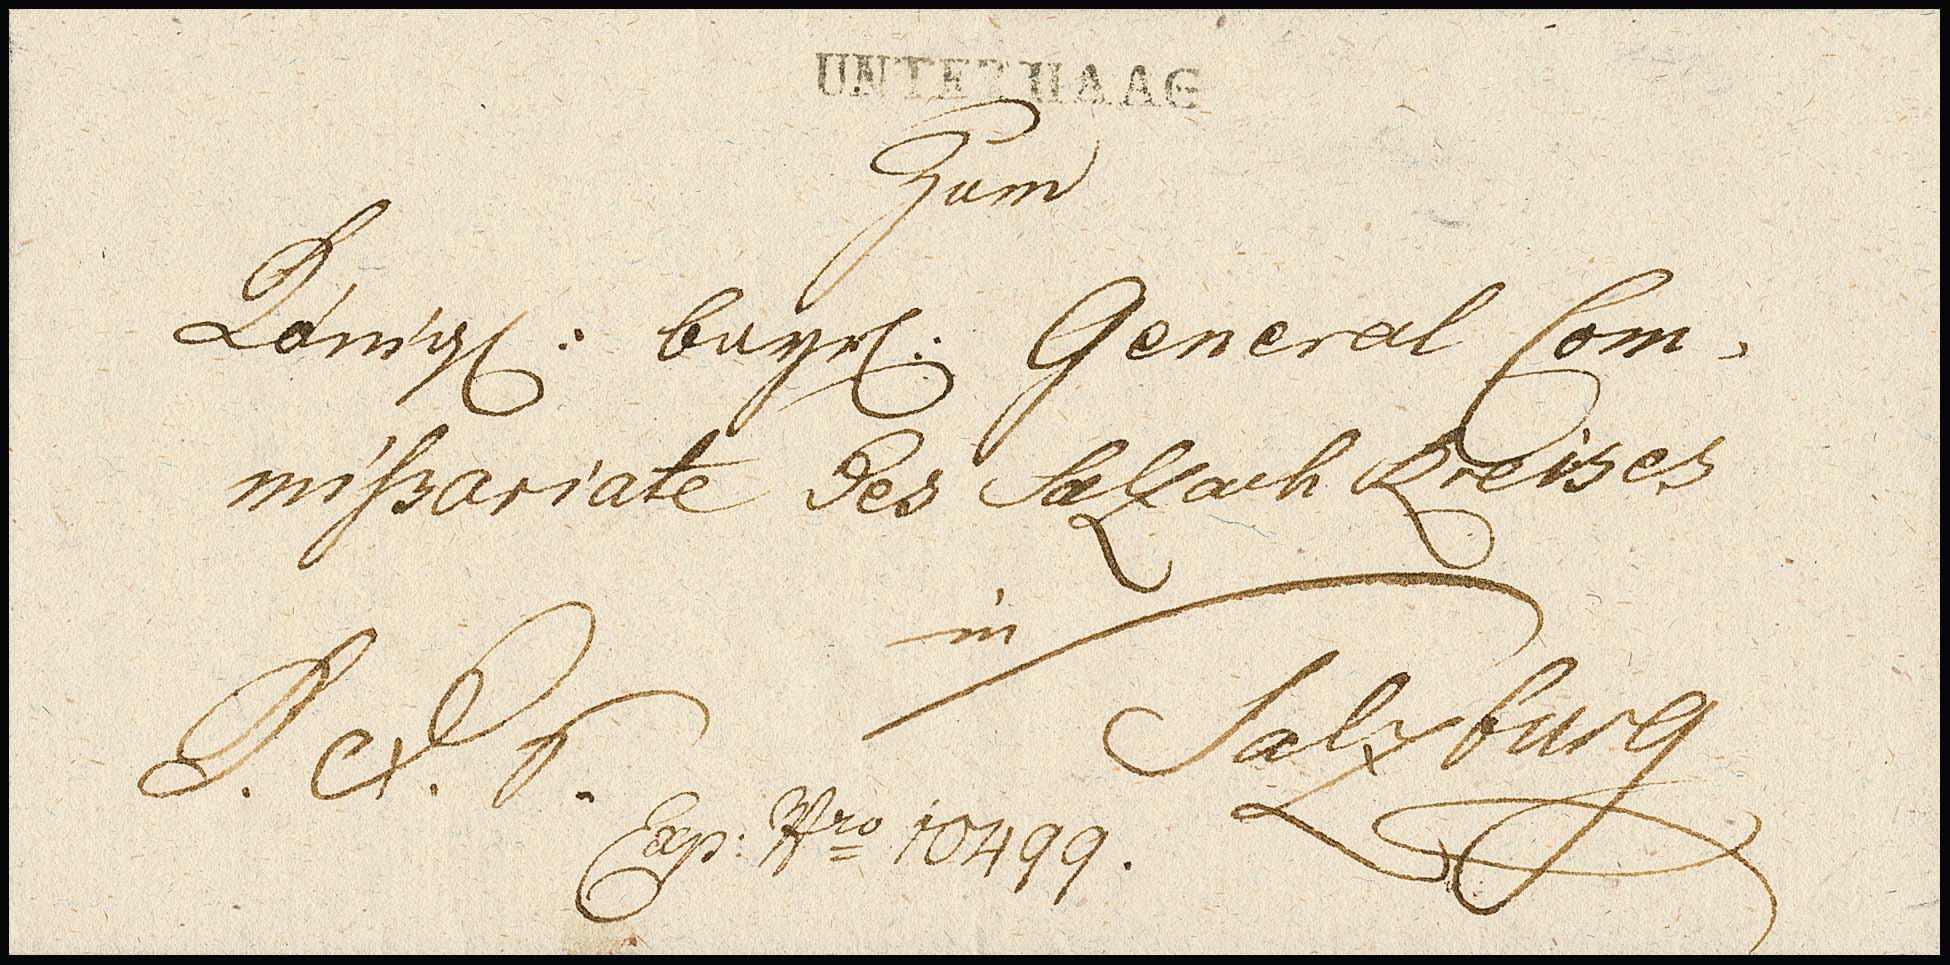 UNTERHAAG
Zum
Königl: bayrl: General Com,
mißariate des Salzach Kreises
in
Salzburg
Exp: Nro 10499.